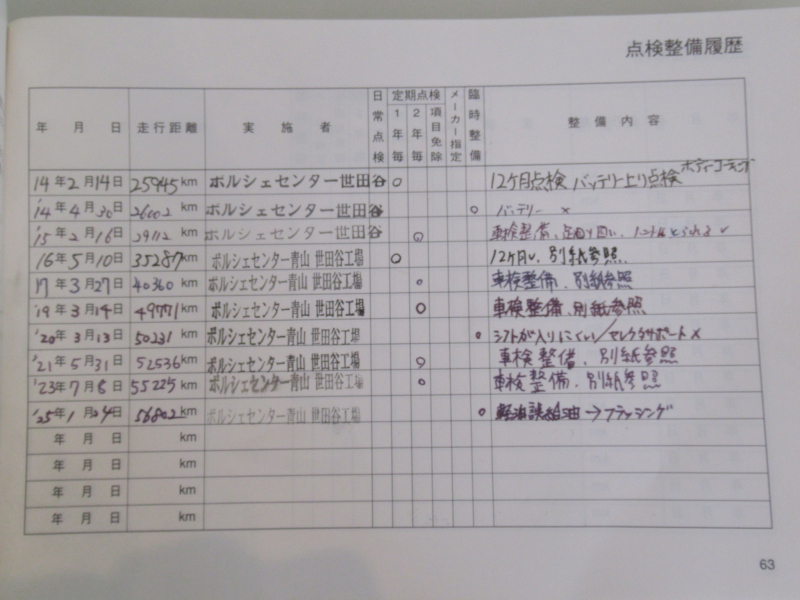 点検整備履歴
年 月 日 走行距離 実施者 日常点検 定期点検 1年毎 2年毎 項目免除 メーカー指定 臨時整備 整備内容
14年2月14日 25945km ポルシェセンター世田谷 ○ 12ヶ月点検 バッテリー上り点検 ボディーコーティング
'14年4月30日 26002km ポルシェセンター世田谷 ○ バッテリー ×
'15年2月16日 29112km ポルシェセンター世田谷 ○ 車検整備、
16年5月10日 35287km ポルシェセンター青山 世田谷工場 ○ 12ヶ月、別紙参照
17年3月27日 40360km ポルシェセンター青山 世田谷工場 ○ 車検整備、別紙参照
'19年3月14日 49771km ポルシェセンター青山 世田谷工場 ○ 車検整備、別紙参照
'20年3月13日 50231km ポルシェセンター青山 世田谷工場 ○ シフトが入りにくい/セレクタサポート ×
'21年5月31日 52536km ポルシェセンター青山 世田谷工場 ○ 車検整備、別紙参照
'23年7月8日 55225km ポルシェセンター青山 世田谷工場 ○ 車検整備、別紙参照
'25年1月24日 56802km ポルシェセンター青山 世田谷工場 ○ 軽油誤給油→フラッシング
年 月 日 km
年 月 日 km
年 月 日 km
年 月 日 km
63